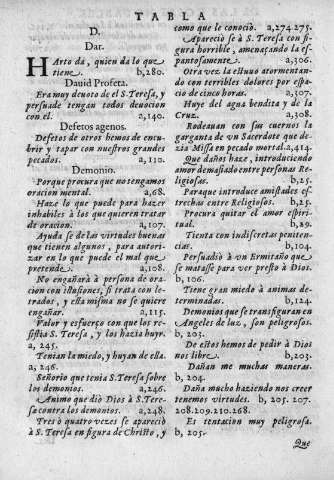 TABLA
D.
Dar.
HArto dá, quien da lo que
tiene. b, 280.
Dauid Profeta.
Era muy deuoto de el S. Teresa, y
persuade tengan todos deuocion
con el. a, 140.
Defetos agenos.
Defetos de otros hemos de encu-
brir y tapar con nuestros grandes
pecados. a, 110.
Demonio.
Porque procura que no tengamos
oracion mental. a, 68.
Haze lo que puede para hazer
inhabiles à los que quieren tratar
de oracion. a, 107.
Ayuda se de las virtudes buenas
que tienen algunos, para autori-
zar en lo que puede el mal que
pretende. a, 108.
No engañarà à persona de ora-
cion con illusiones, si trata con le-
trados, y esta misma no se quiere
engañar. a, 115.
Valor y esfuerço con que los re-
sistia S. Teresa, y los hazia huyr.
a, 245.
Tenian la miedo, y huyan de esta.
a, 246.
Señorio que tenia S. Teresa sobre
los demonios. a, 246.
Animo que diò Dios à S. Tere-
sa contra los demonios. a, 248.
Tres ò quatro vezes se apareciò
à S. Teresa en figura de Christo, y
como que le conociò. a, 274. 275.
Apareciò se à S. Teresa con fi-
gura horrible, amenaçando la es-
pantosamente. a, 306.
Otra vez la estuuo atormentan-
do con terribles dolores por espa-
cio de cinco horas. a, 307.
Huye del agua bendita y de la
Cruz. a, 308.
Rodeauan con sus cuernos la
garganta de vn Sacerdote que de-
zia Missa en pecado mortal. a, 414.
Que daños haze, introduciendo
amor demasiado entre personas Re-
ligiosas. b, 25.
Paraque introduce amistades es-
trechas entre Religiosos. b, 25.
Procura quitar el amor espiri-
tual. b, 29.
Tienta con indiscretas peniten-
cias. b, 104.
Persuadiò à vn Ermitaño que
se matasse para ver presto à Dios.
b, 106.
Tiene gran miedo à animas de-
terminadas. b, 124.
Demonios que se transfiguran en
Angeles de luz, son peligrosos.
b, 203.
De estos hemos de pedir à Dios
nos libre. b, 203.
Dañan me muchas maneras.
b, 204.
Daña mucho haziendo nos creer
tenemos virtudes. b, 205. 207.
208. 209. 210. 268.
Es tentacion muy peligrosa.
b, 205.
Que